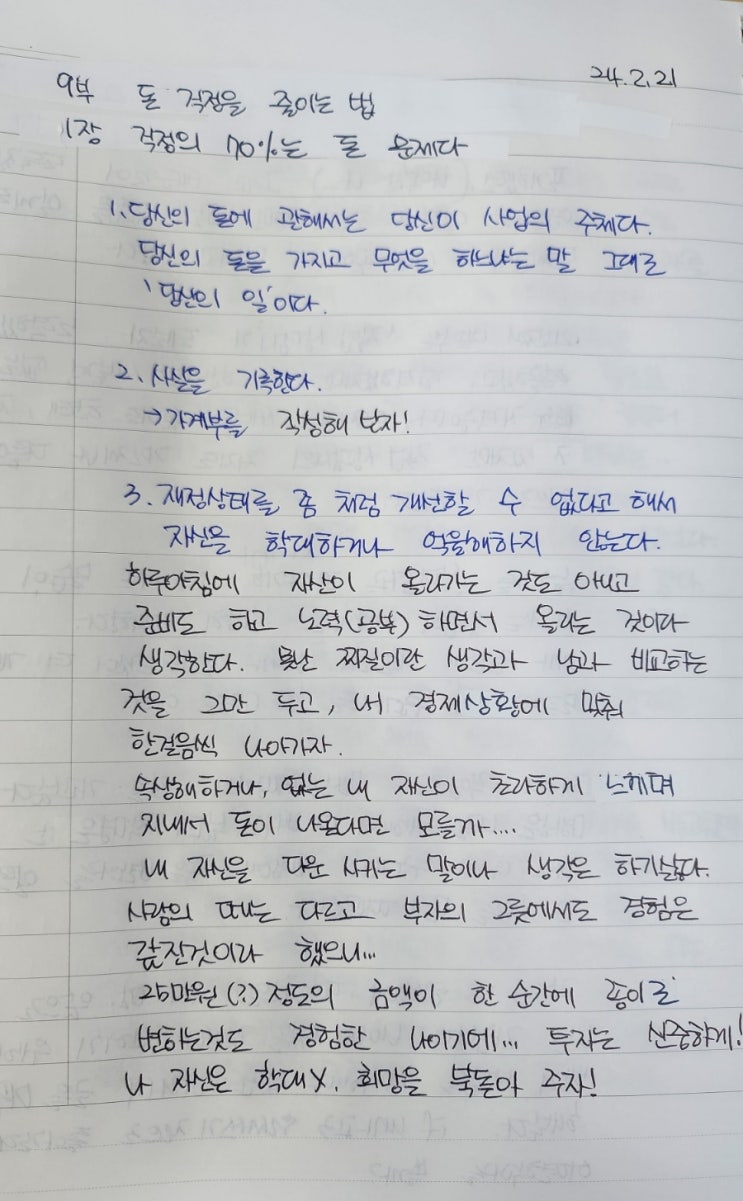 24.2.21
9부 돈 걱정을 줄이는 법
1장 걱정의 70%는 돈 문제다
1. 당신의 돈에 관해서는 당신이 사업의 주체다.
당신의 돈을 가지고 무엇을 하느냐는 말 그대로
'당신의 일'이다.
2. 사실을 기록한다.
→ 가계부를 작성해 보자!
3. 재정상태를 좀 처럼 개선할 수 없다고 해서
자신을 학대하거나 억울해하지 않는다.
하루아침에 자산이 올라가는 것도 아니고
준비도 하고 노력(공부) 하면서 올라는 것이다
생각한다. 못난 찌질이란 생각과 남과 비교하는
것을 그만 두고, 내 경제상황에 맞춰
한걸음씩 나아가자.
속상해하거나, 없는 내 자신이 초라하게 느끼며
지내서 돈이 나온다면 모를까....
내 자신을 다운 시키는 말이나 생각은 하기싫다.
사람의 때는 다르고 부자의 그릇에서도 경험은
값진것이라 했으니...
25만원(?) 정도의 금액이 한 순간에 종이로
변하는것도 경험한 나이기에... 투자는 신중하게!
나 자신은 학대X. 희망을 북돋아 주자!